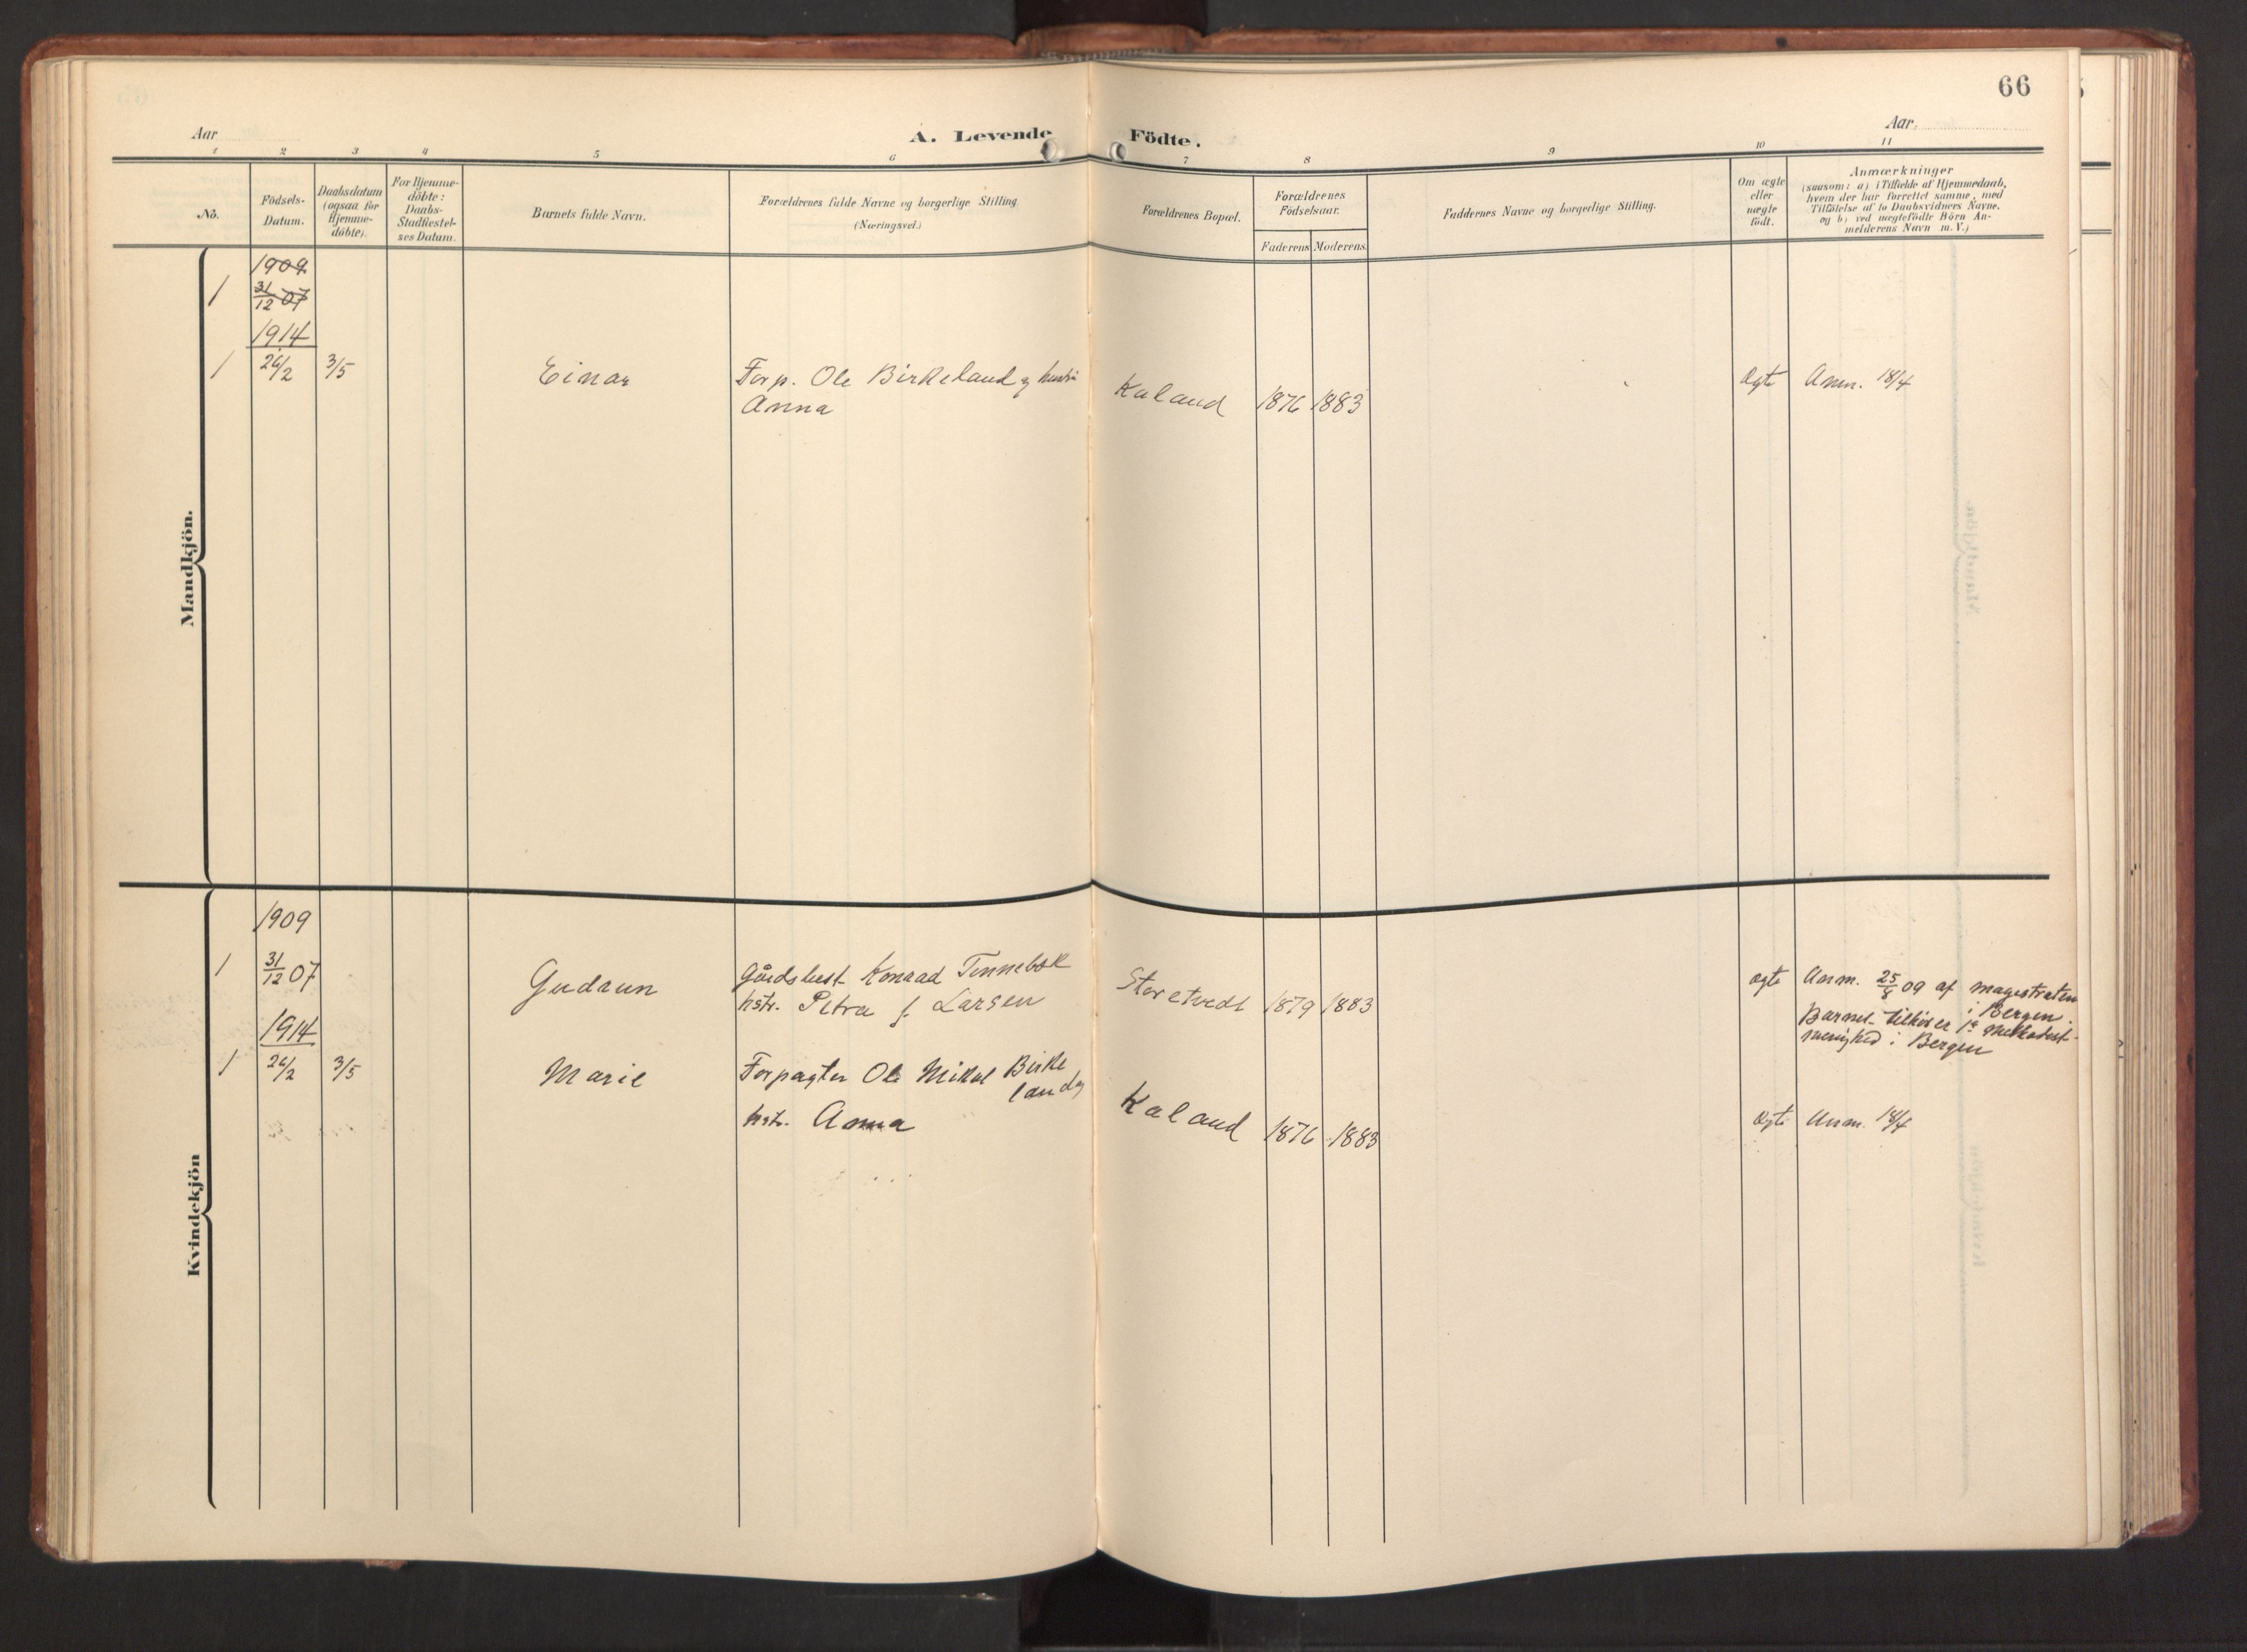 66
Aar
A. Levende Födte.
Aar.
1 2 3 4 5 6 7 8 9 10 11
No.
Födsels-
Datum.
Daabsdatum
(ogsaa for
Hjemme-
döbte).
For Hjemme-
döbte:
Daabs-
Stadfæstel-
ses Datum.
Barnets fulde Navn.
Forældrenes fulde Navne og borgerlige Stilling
(Næringsvei.)
Forældrenes Bopæl.
Forældrenes
Födselsaar.
Faderens Moderens
Faddernes Navne og borgerlige Stilling.
Om ægte
eller
uægte
födt.
Anmærkninger
(saasom: a) i Tilfælde af Hjemmedaab,
hvem der har forrettet samme, med
Tilföielse af to Daabsvidners Navne.
og b) ved uægtefödte Börn An-
melderens Navn m. V.)
Mandkjön.
1909
1 31/12 07
1914
1 26/2 3/5 Einar Forp. Ole Birkeland og hustru Kaland 1876 1883 Ægte Anm. 18/4
Anna
Kvindekjön
1909
1 31/12 07 Gudrun Gårdsbest. Konrad Tennebek Storetvedt 1879 1883 ægte Anm. 25/8 09 af magistraten
hstr. Petra f. Larsen i Bergen.
Barnet tilhører 1ste Methodist-
menighed i Bergen
1914
1 26/2 3/5 Marie Forpagter Ole Mikal Birke
land og
hstr. Anna Kaland 1876 1883 Ægte Anm. 18/4